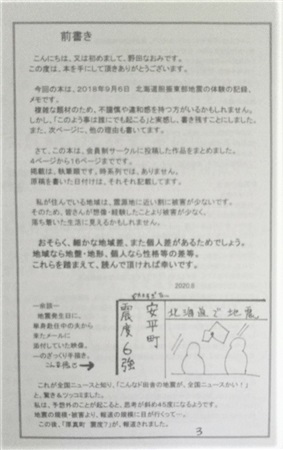 前書き
こんにちは、又は初めまして、野田なおみです。
この度は、本を手にして頂きありがとうございます。
今回の本は、2018年9月6日 北海道胆振東部地震の体験の記録、
メモです。
複雑な題材のため、不謹慎や違和感を持つ方がいるかもしれません。
しかし、「このような事は誰にでも起こる」と実感し、書き残すことにしました。
また、次ページに、他の理由も書いてます。
さて、この本は、会員制サークルに投稿した作品をまとめました。
4ページから16ページまでです。
掲載は、執筆順です。時系列では、ありません。
原稿を書いた日付けは、それぞれ記載してます。
私が住んでいる地域は、震源地に近い割に被害が少ないです。
そのため、皆さんが想像・経験したことより被害が少なく、
落ち着いた生活に見えるかもしれません。
おそらく、細かな地域差、また個人差があるためでしょう。
地域なら地盤・地形、個人なら性格等の差等。
これらを踏まえて、読んで頂ければ幸いです。
2020.8
―余談―
地震発生日に、
単身赴任中の夫から
来たメールに
添付していた映像。
―のざっくり手描き。
安平町
震度6強
北海道で地震
これが全国ニュースと知り、「こんな田舎の地震が、全国ニュースかい！」
と、驚き＆ツッコミました。
私は、予想外のことが起こると、思考が斜め45度になるようです。
地震の規模・被害より、報道の規模に目が行くって…。
この後、「厚真町 震度7」が、報道されました。
3